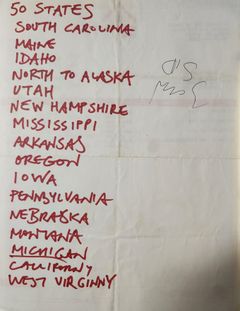 50 STATES
SOUTH CAROLINA
MAINE
IDAHO
NORTH TO ALASKA
UTAH
NEW HAMPSHIRE
MISSISSIPPI
ARKANSAS
OREGON
IOWA
PENNSYLVANIA
NEBRASKA
MONTANA
MICHIGAN
CALIFORNY
WEST VIRGINNY